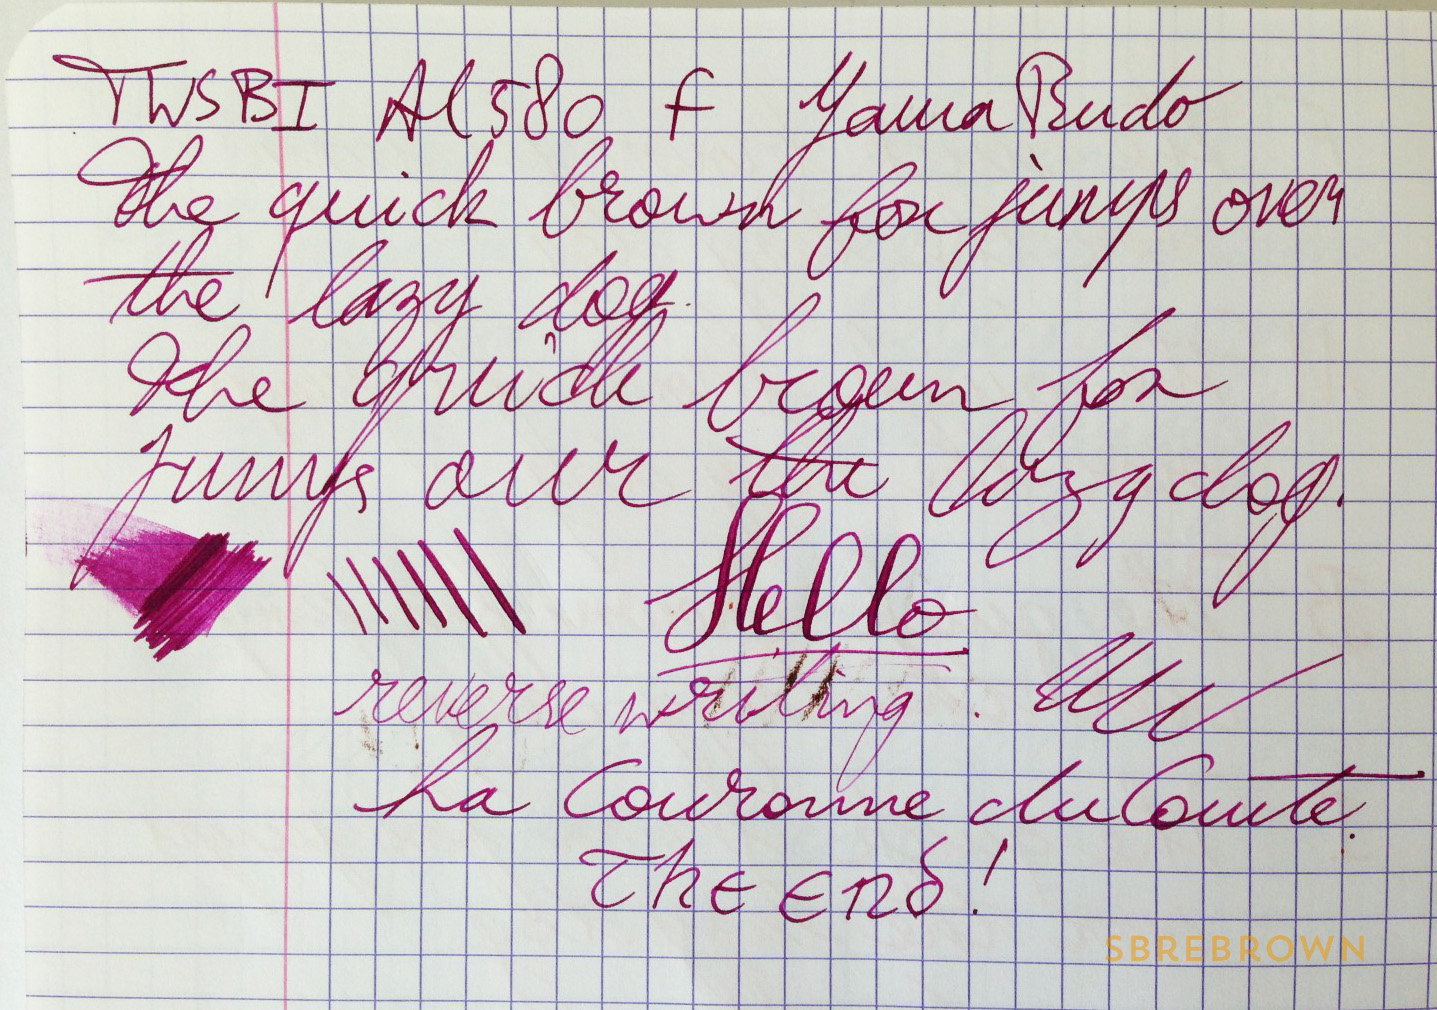 TWSBI Al 580 F Yama Budo
The quick brown fox jumps over
the lazy dog.
The quick brown fox
jumps over the lazy dog.
Hello
reverse writing.
La Couronne du Comte.
The End!
SBREBROWN